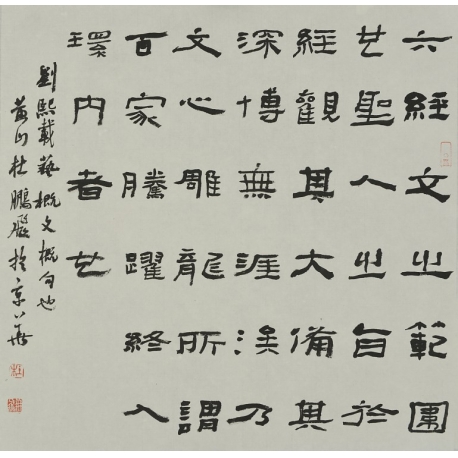 六經文之範圍
也聖人之旨於
經觀其大備其
深博無涯涘乃
文心雕龍所謂
百家騰躍終入
環内者也
劉熙載藝概文概句也
黄山杜鵬飛於京華